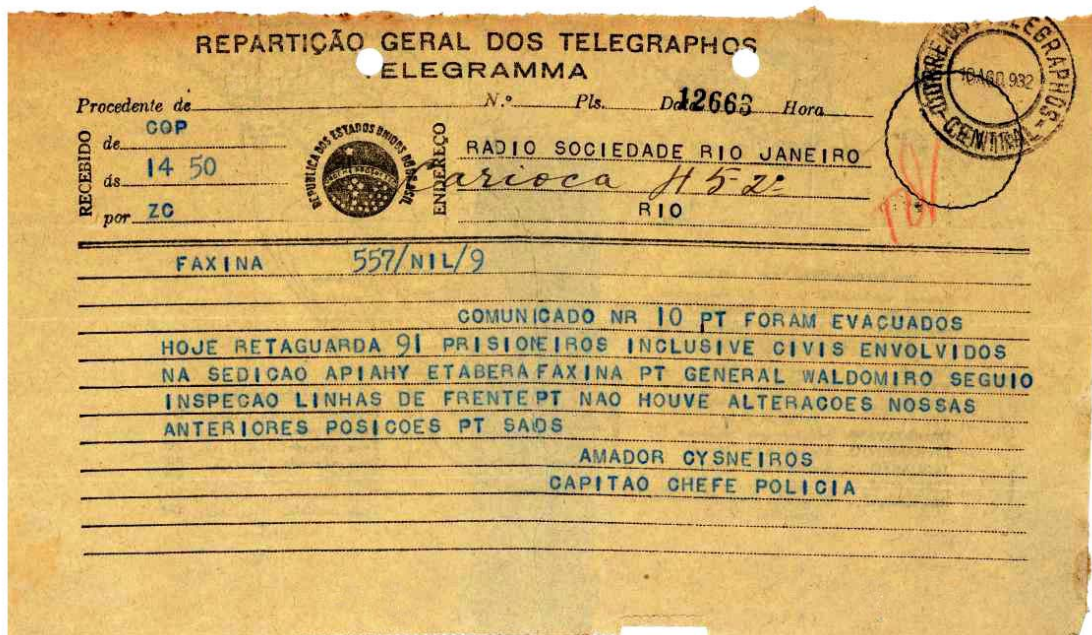 REPARTIÇÃO GERAL DOS TELEGRAPHOS
TELEGRAMMA
CORREIOS TELEGRAPHOS
10 AGO. 932
CENTRAL
Procedente de N.º Pls. Data 12663 Hora
RECEBIDO
de COP
ás 14 50
por ZC
REPUBLICA DOS ESTADOS UNIDOS DO BRASIL
ENDEREÇO
RADIO SOCIEDADE RIO JANEIRO
Carioca 45-2º
RIO
FAXINA 557/NIL/9
COMUNICADO NR 10 PT FORAM EVACUADOS
HOJE RETAGUARDA 91 PRISIONEIROS INCLUSIVE CIVIS ENVOLVIDOS
NA SEDICAO APIAHY ETABERA FAXINA PT GENERAL WALDOMIRO SEGUIO
INSPECAO LINHAS DE FRENTE PT NAO HOUVE ALTERACOES NOSSAS
ANTERIORES POSICOES PT SADS
AMADOR CYSNEIROS
CAPITAO CHEFE POLICIA